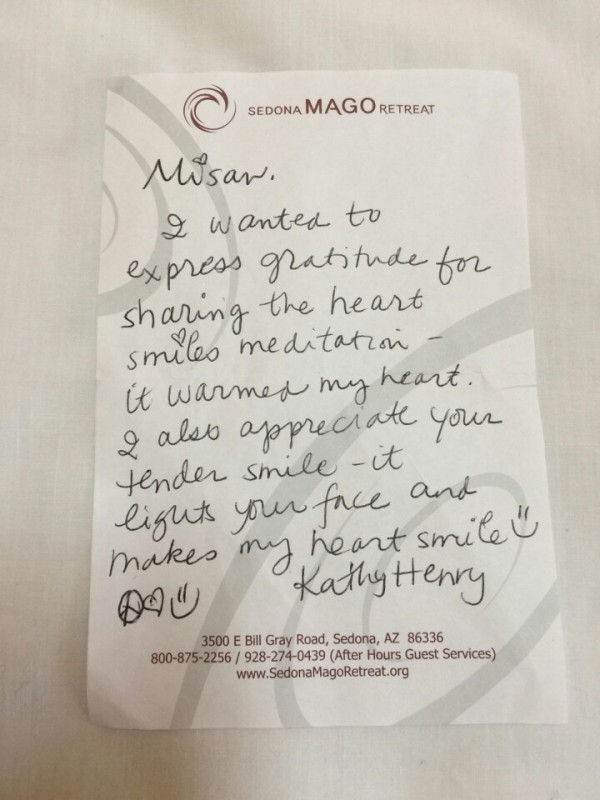 SEDONA MAGO RETREAT
Misan.
I wanted to
express gratitude for
sharing the heart
smiles meditation -
it warmed my heart.
I also appreciate your
tender smile - it
lights your face and
makes my heart smile
Kathy Henry
3500 E Bill Gray Road, Sedona, AZ 86336
800-875-2256 / 928-274-0439 (After Hours Guest Services)
www.SedonaMagoRetreat.org